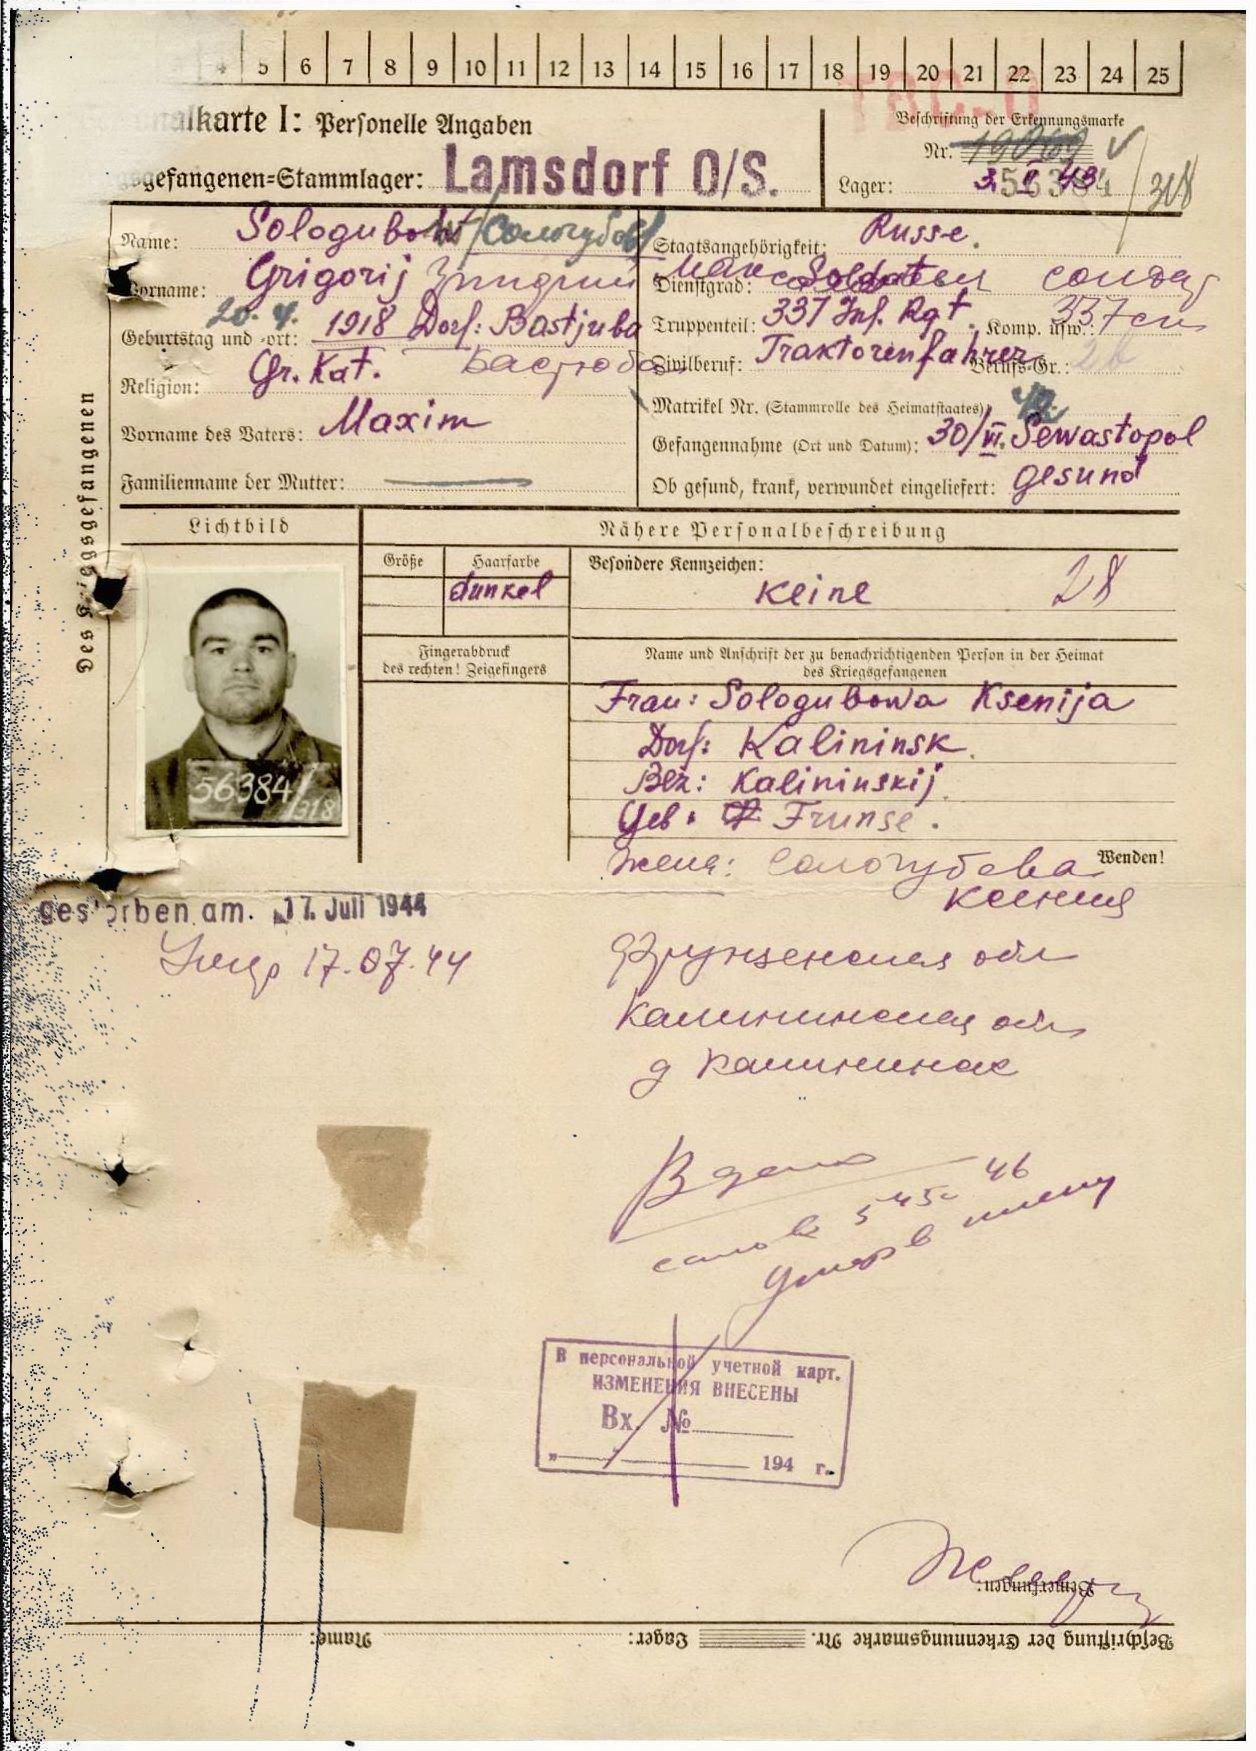 4 5 6 7 8 9 10 11 12 13 14 15 16 17 18 19 20 21 22 23 24 25
nalkarte I: Personelle Angaben
Beschriftung der Erkennungsmarke
Nr. 19069
gsgefangenen=Stammlager: Lamsdorf O/S.
Lager: 56384 / 318
Name: Sologubow / Сологубов
Staatsangehörigkeit: Russe.
Vorname: Grigorij
Dienstgrad: Soldat солдат
Geburtstag und -ort: 20. 4. 1918 Dorf: Bastjuba
Бастюба
Truppenteil: 337 Inf. Rgt. Komp. usw.: 337 сп
Religion: Gr. Kat.
Zivilberuf: Traktorenfahrer Berufs-Gr.: 2b
Matrikel Nr. (Stammrolle des Heimatstaates)
Vorname des Vaters: Maxim
Gefangennahme (Ort und Datum): 30/VI. 42 Sewastopol
Familienname der Mutter:
Ob gesund, krank, verwundet eingeliefert: gesund
Des Kriegsgefangenen
Lichtbild
Nähere Personalbeschreibung
Größe
Haarfarbe
dunkel
Besondere Kennzeichen:
keine 28
Fingerabdruck
des rechten! Zeigefingers
Name und Anschrift der zu benachrichtigenden Person in der Heimat
des Kriegsgefangenen
56384/318
Frau: Sologubowa Ksenija
Dorf: Kalininsk.
Bez: Kalininskij.
Geb. Frunse.
Wenden!
жена: Сологубова
Ксения
gestorben am. 17. Juli 1944
Умер 17.07.44
Фрунзенская обл
Калининская обл
д Калининск
46
Умер в плену
В персональной учетной карт.
ИЗМЕНЕНИЯ ВНЕСЕНЫ
Вх. №
„ “ 194 г.
Bemerkungen:
Beschriftung der Erkennungsmarke Nr. Lager: Name: